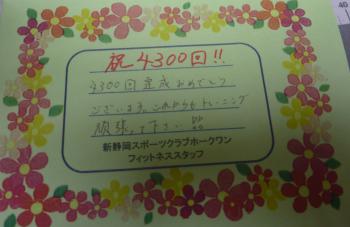 祝4300回!!
4300回達成おめでとう
ございます。これからもトレーニング
頑張って下さい!!
新静岡スポーツクラブホークワン
フィットネススタッフ
40